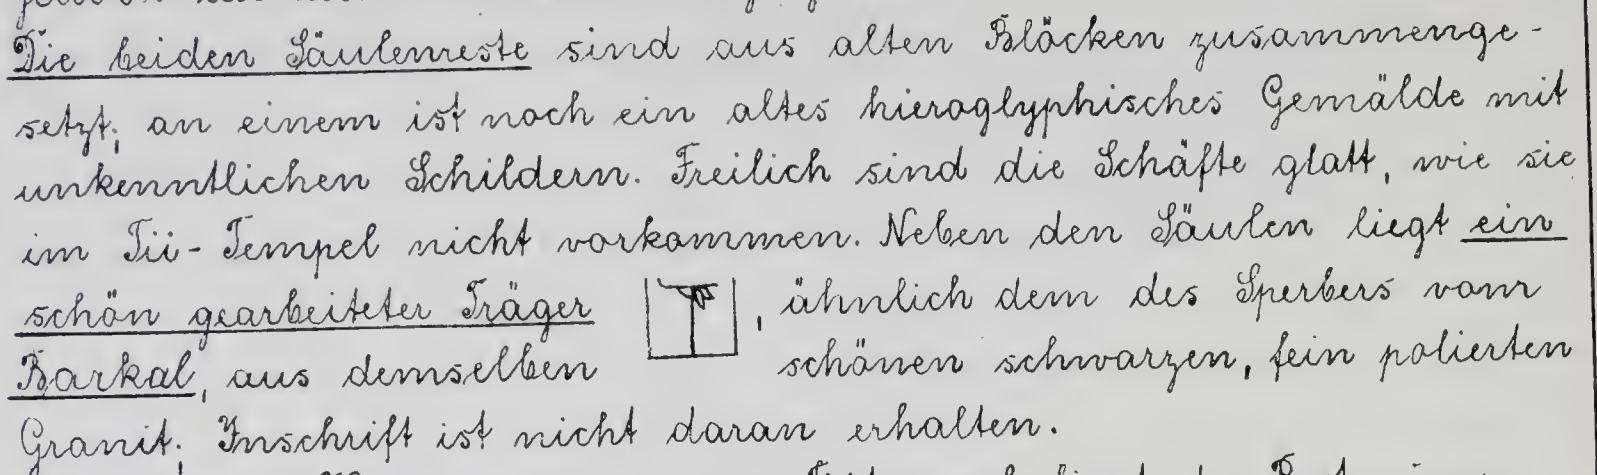 Die beiden Säulenreste sind aus alten Blöcken zusammenge-
setzt; an einem ist noch ein altes hieroglyphisches Gemälde mit
unkenntlichen Schildern. Freilich sind die Schäfte glatt, wie sie
im Tii-Tempel nicht vorkommen. Neben den Säulen liegt ein
schön gearbeiteter Träger , ähnlich dem des Sperbers vom
Barkal, aus demselben schönen schwarzen, fein polierten
Granit; Inschrift ist nicht daran erhalten.